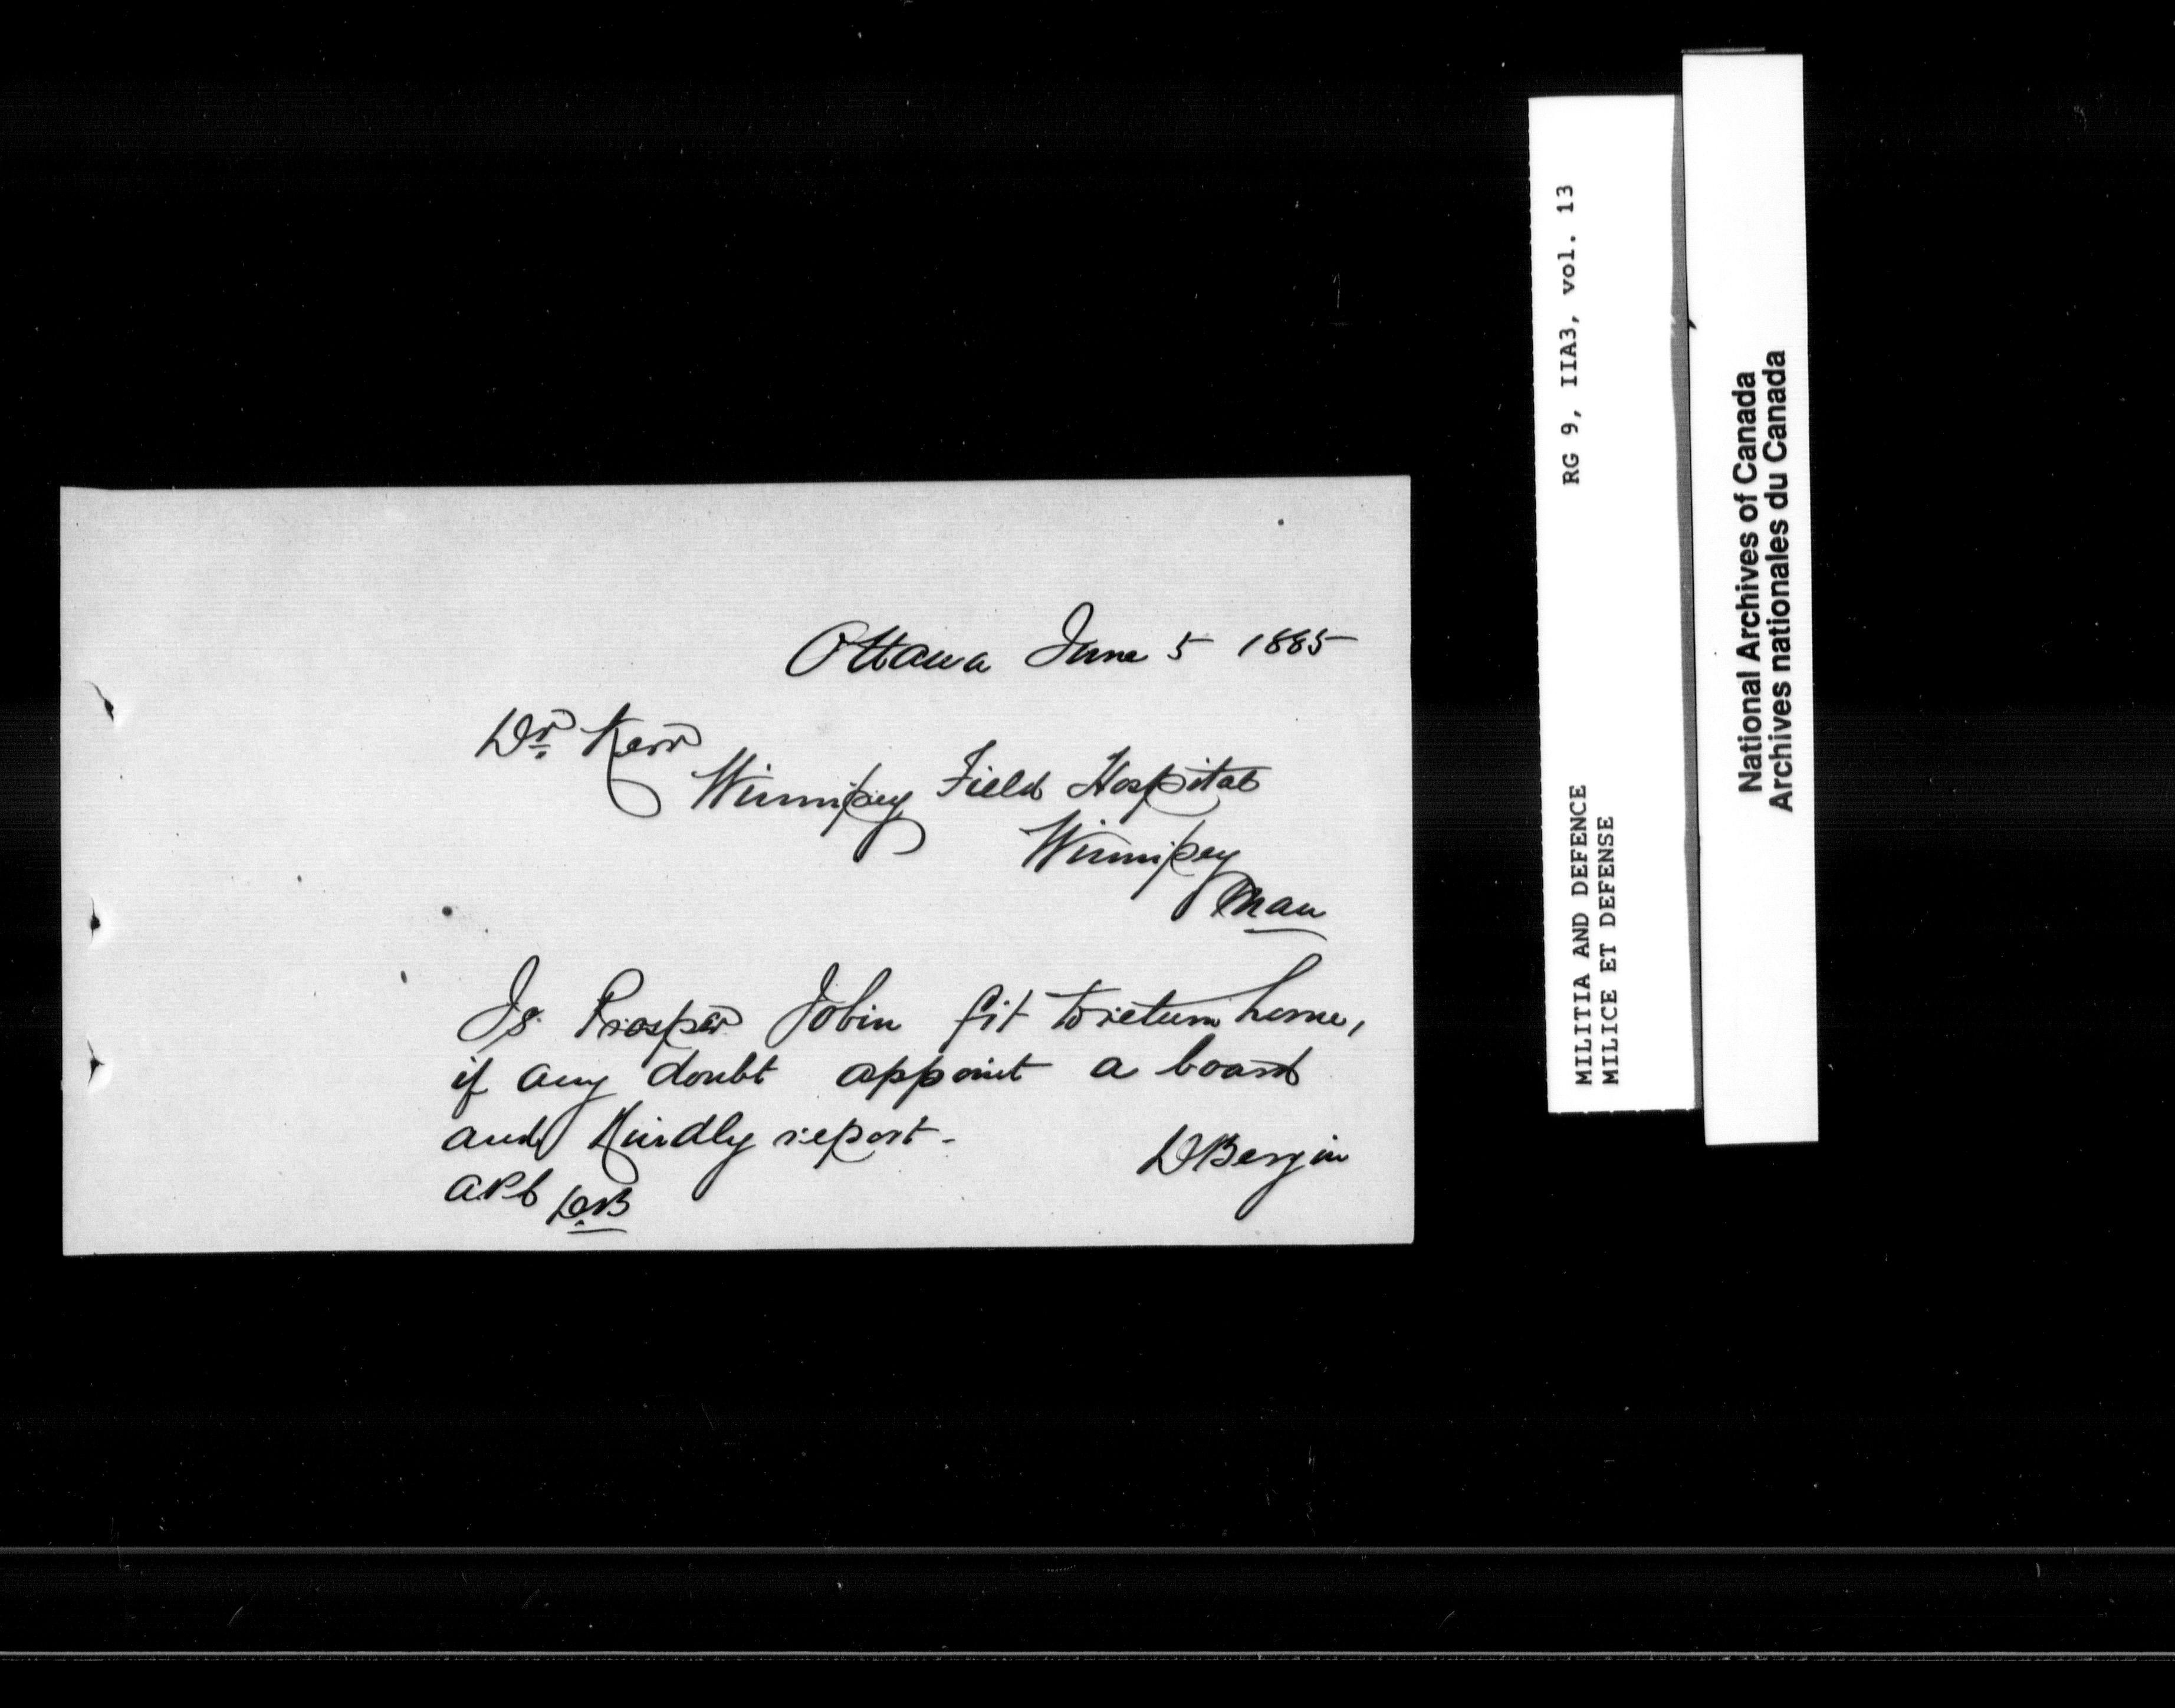 Ottawa June 5 1885
Dr. Kerr
Winnipeg Field Hospital
Winnipeg
Man
Is Prosper Jobin fit to return home,
if any doubt appoint a board
and Kindly report -
DBergin
DB
RG 9, IIA3, vol. 13
MILITIA AND DEFENCE
MILICE ET DEFENSE
National Archives of Canada
Archives nationales du Canada